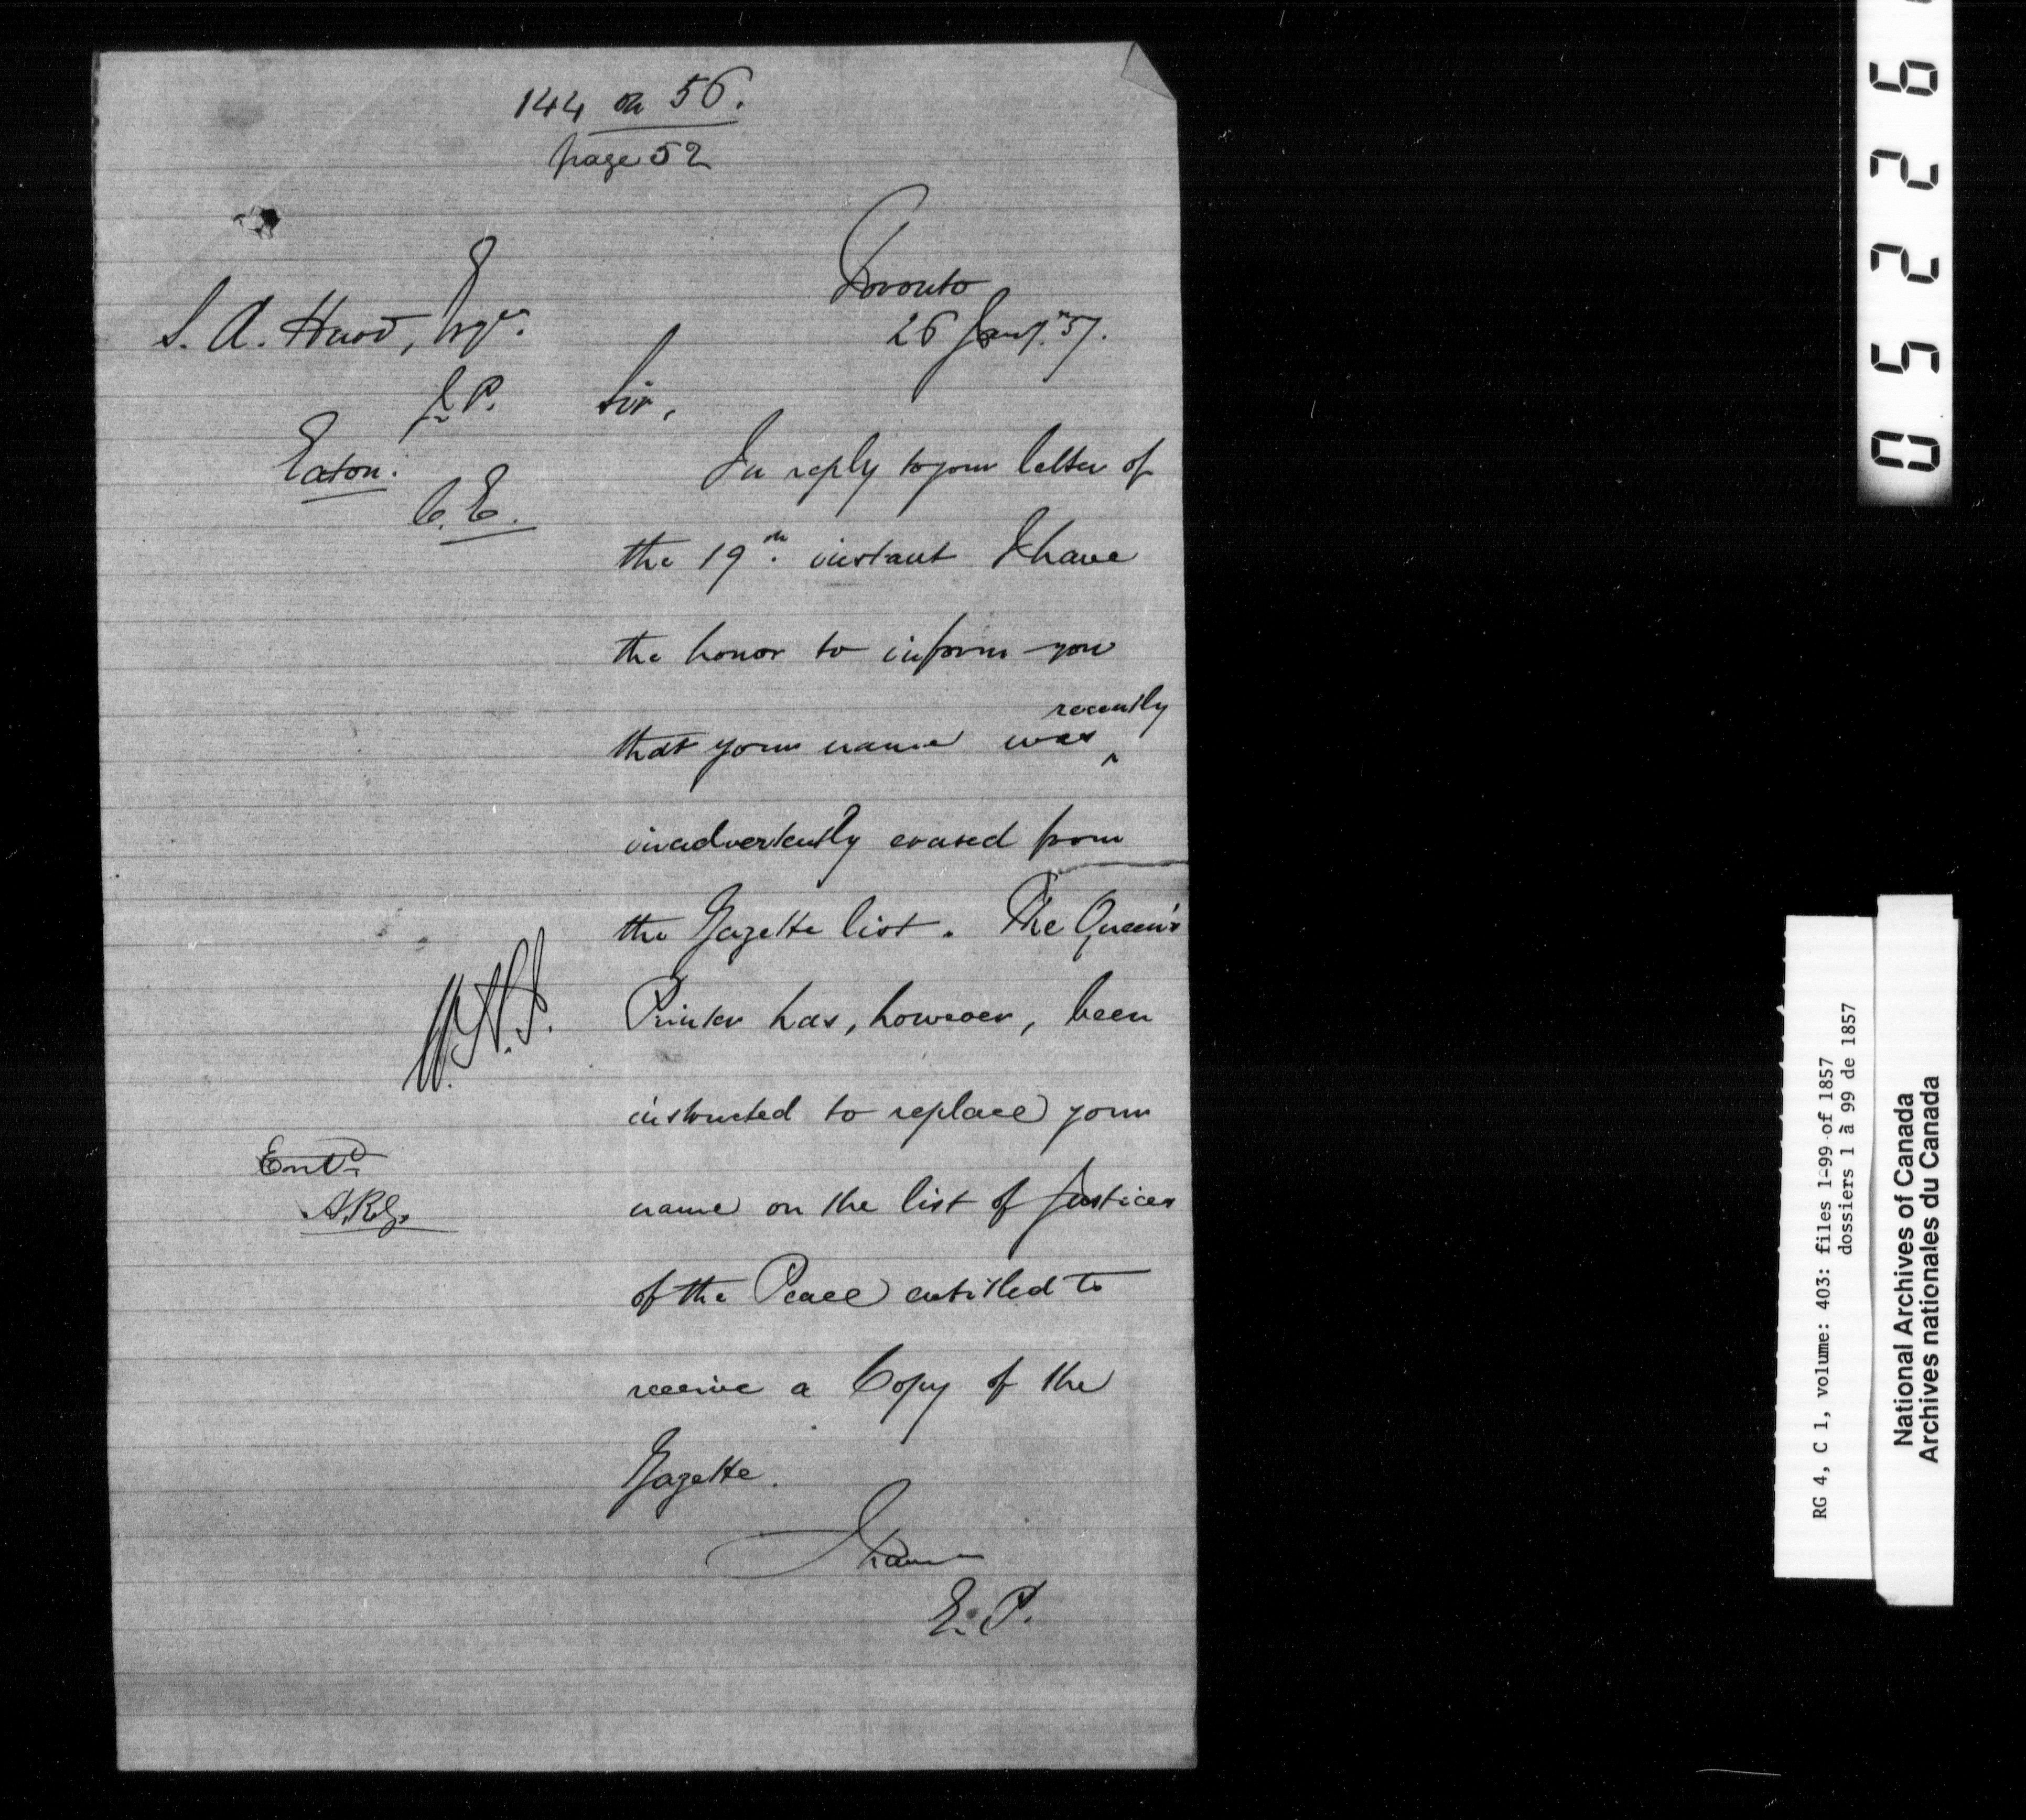 144 on 56.
page 52
Toronto
26 Jany. 57.
S. A. Hurd, Esqre.
J.P.
Eaton.
C.E.
Sir,
In reply to your letter of
the 19th. instant I have
the honor to inform you
that your name was ^ recently
inadvertently erased from
the Gazette list. The Queen's
Printer has, however, been
instructed to replace your
name on the list of Justices
of the Peace entitled to
receive a Copy of the
Gazette.
I have
E. P.
Entd.
05226
RG 4, C 1, volume: 403: files 1-99 of 1857
dossiers 1 à 99 de 1857
National Archives of Canada
Archives nationales du Canada